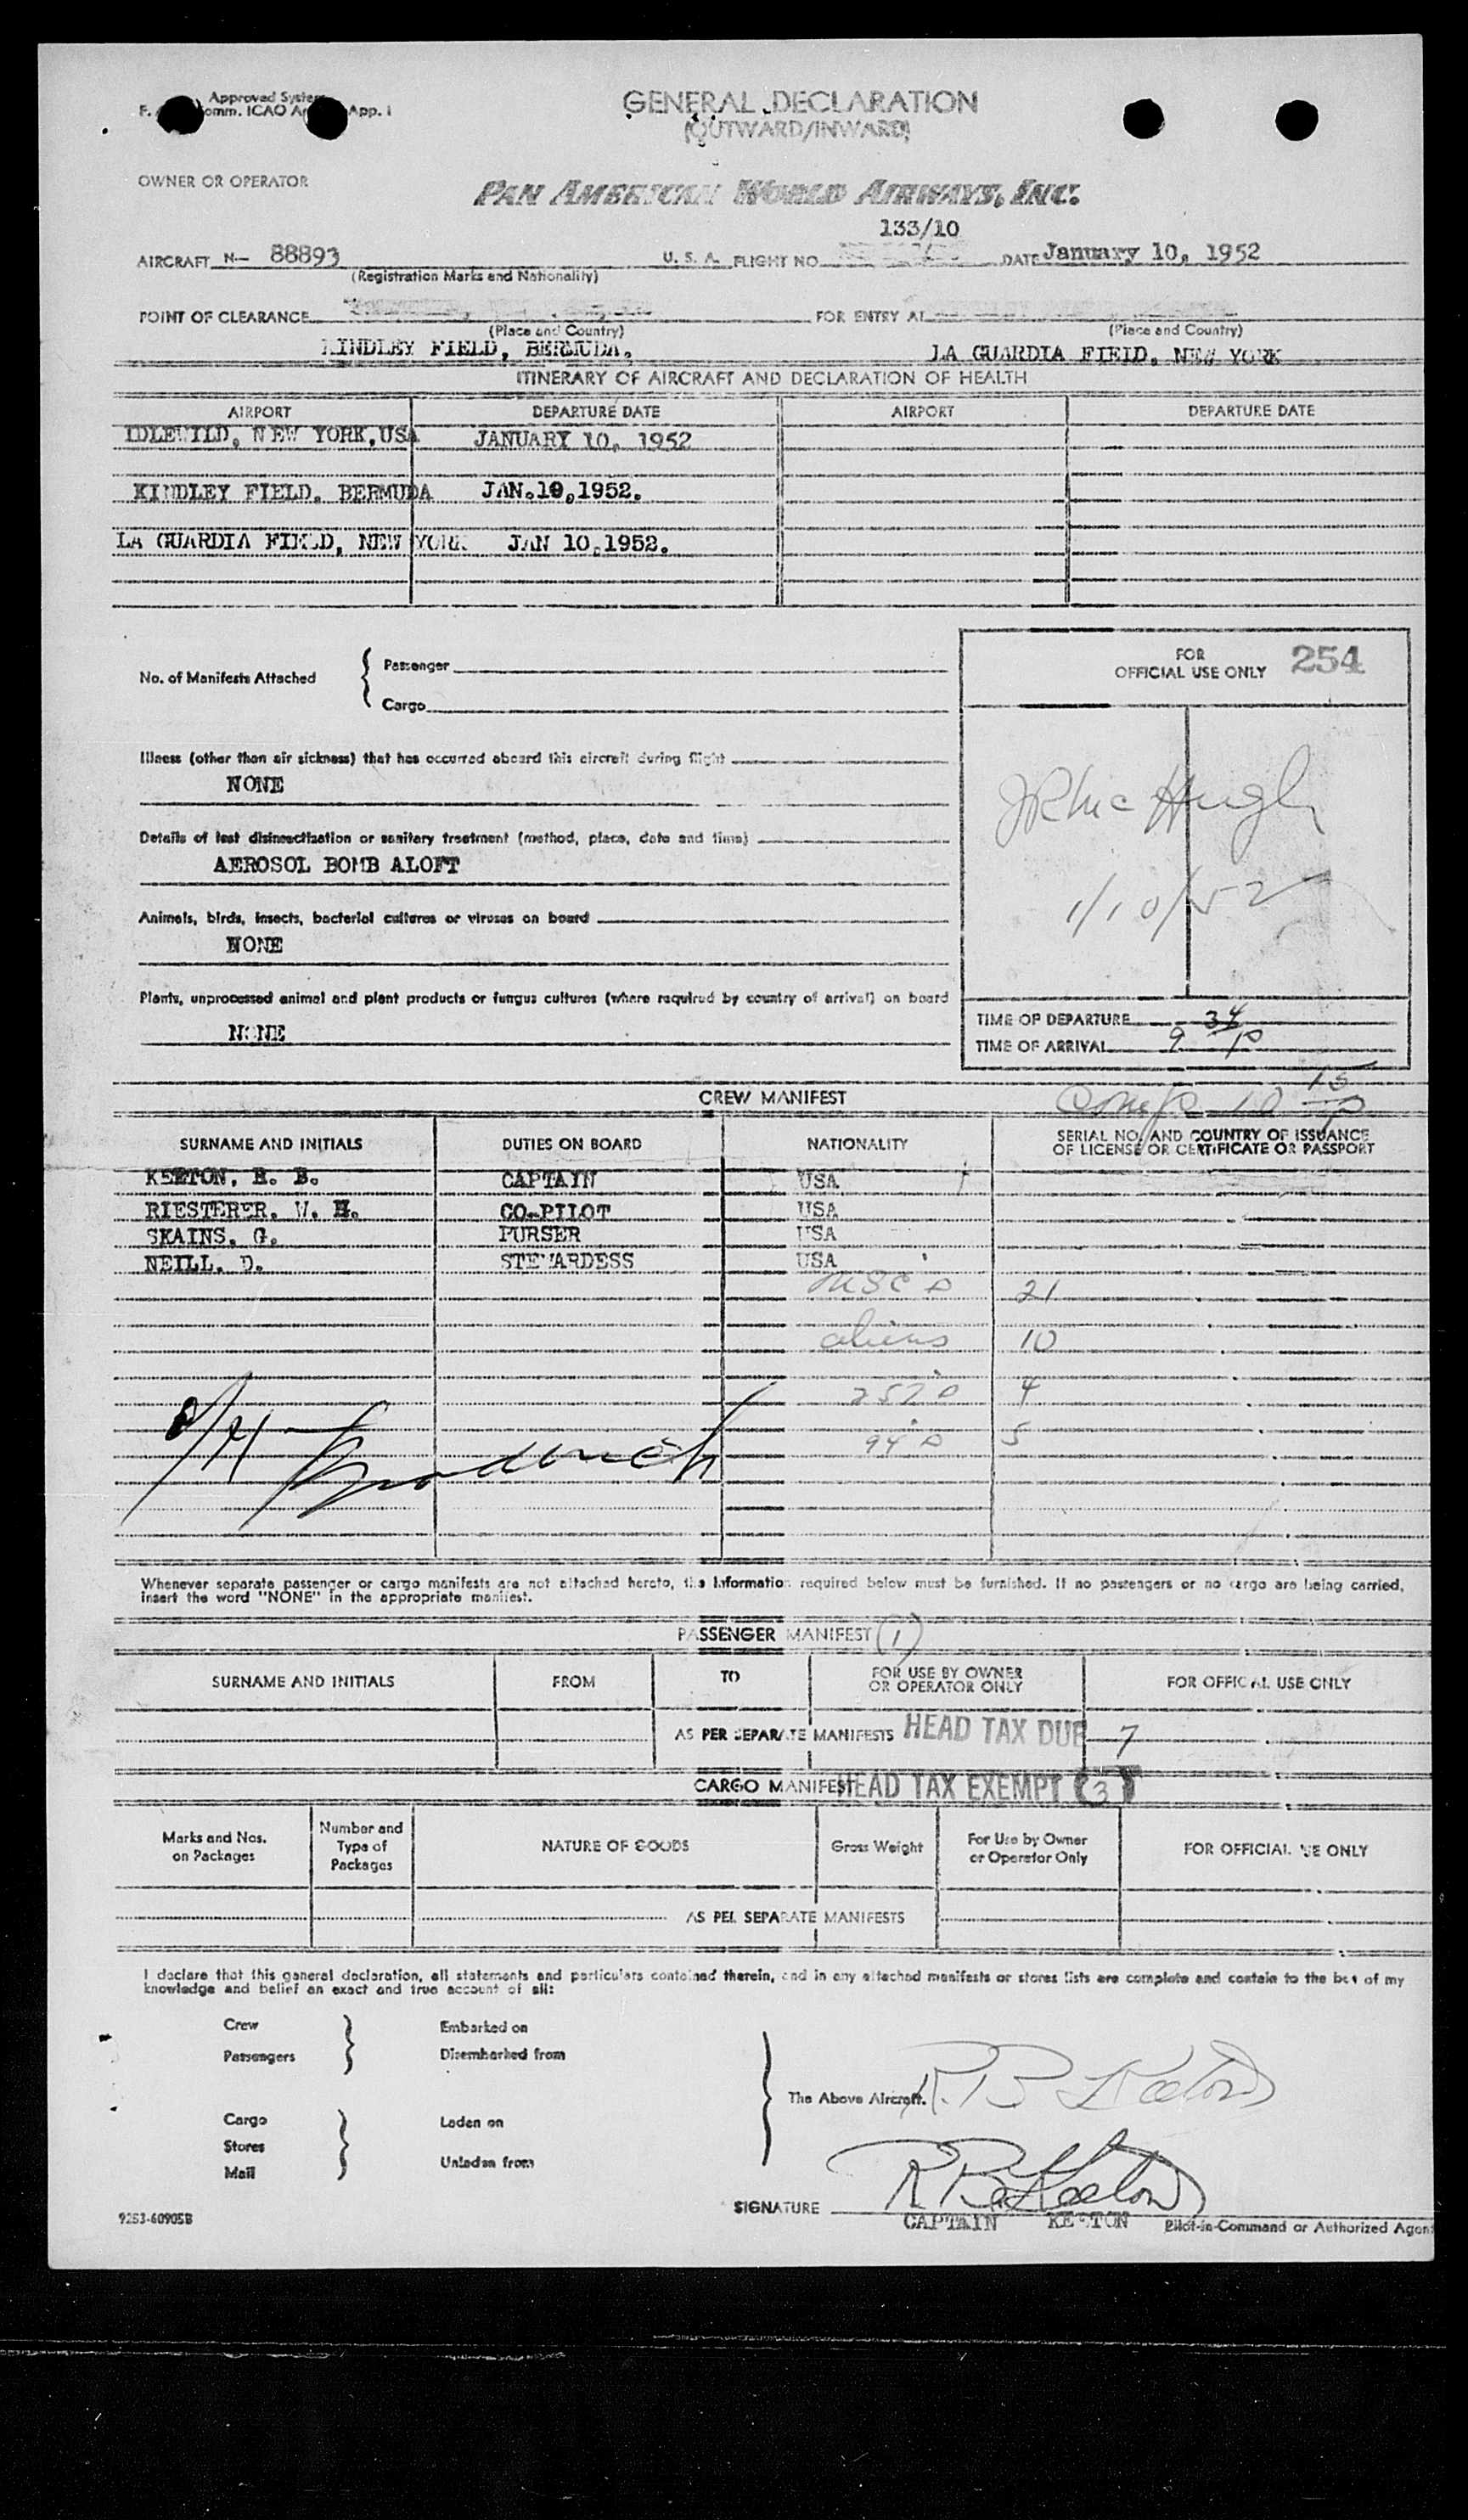 Approved System
F. omm. ICAO An App. I
GENERAL DECLARATION
(OUTWARD/INWARD)
OWNER OR OPERATOR
PAN AMERICAN WORLD AIRWAYS, INC.
133/10
AIRCRAFT N- 88893 U. S. A. FLIGHT NO DATE January 10, 1952
(Registration Marks and Nationality)
POINT OF CLEARANCE FOR ENTRY AT
(Place and Country) (Place and Country)
KINDLEY FIELD, BERMUDA. LA GUARDIA FIELD, NEW YORK
ITINERARY OF AIRCRAFT AND DECLARATION OF HEALTH
AIRPORT DEPARTURE DATE AIRPORT DEPARTURE DATE
IDLEWILD, NEW YORK, USA JANUARY 10, 1952
KINDLEY FIELD. BERMUDA JAN.10,1952.
LA GUARDIA FIELD, NEW YORK JAN 10,1952.
FOR
OFFICIAL USE ONLY 254
No. of Manifests Attached { Passenger
Cargo
Illness (other than air sickness) that has occurred aboard this aircraft during flight
NONE
J R McHugh
Details of last disinsectization or sanitary treatment (method, place, date and time)
AEROSOL BOMB ALOFT
1/10/52
Animals, birds, insects, bacterial cultures or viruses on board
NONE
Plants, unprocessed animal and plant products or fungus cultures (where required by country of arrival) on board
NONE
TIME OF DEPARTURE
TIME OF ARRIVAL 9 34 P
CREW MANIFEST
10 15 P
SURNAME AND INITIALS DUTIES ON BOARD NATIONALITY SERIAL NO. AND COUNTRY OF ISSUANCE
OF LICENSE OR CERTIFICATE OR PASSPORT
KEETON, R. B. CAPTAIN USA
RIESTERER, W. H. CO-PILOT USA
SKAINS, G. PURSER USA
NEILL, D. STEWARDESS USA
21
aliens 10
4
5
Goodrich
Whenever separate passenger or cargo manifests are not attached hereto, the information required below must be furnished. If no passengers or no cargo are being carried,
insert the word "NONE" in the appropriate manifest.
PASSENGER MANIFEST (1)
SURNAME AND INITIALS FROM TO FOR USE BY OWNER
OR OPERATOR ONLY FOR OFFICIAL USE ONLY
AS PER SEPARATE MANIFESTS HEAD TAX DUE 7
CARGO MANIFEST HEAD TAX EXEMPT (3)
Marks and Nos.
on Packages
Number and
Type of
Packages
NATURE OF GOODS
Gross Weight
For Use by Owner
or Operator Only
FOR OFFICIAL USE ONLY
AS PER SEPARATE MANIFESTS
I declare that this general declaration, all statements and particulars contained therein, and in any attached manifests or stores lists are complete and contain to the best of my
knowledge and belief an exact and true account of all:
Crew Embarked on
Passengers Disembarked from
The Above Aircraft. R. B. Keeton
Cargo Laden on
Stores
Mail Unladen from
SIGNATURE R B Keeton
CAPTAIN KEETON Pilot-in-Command or Authorized Agent
9253-60905B